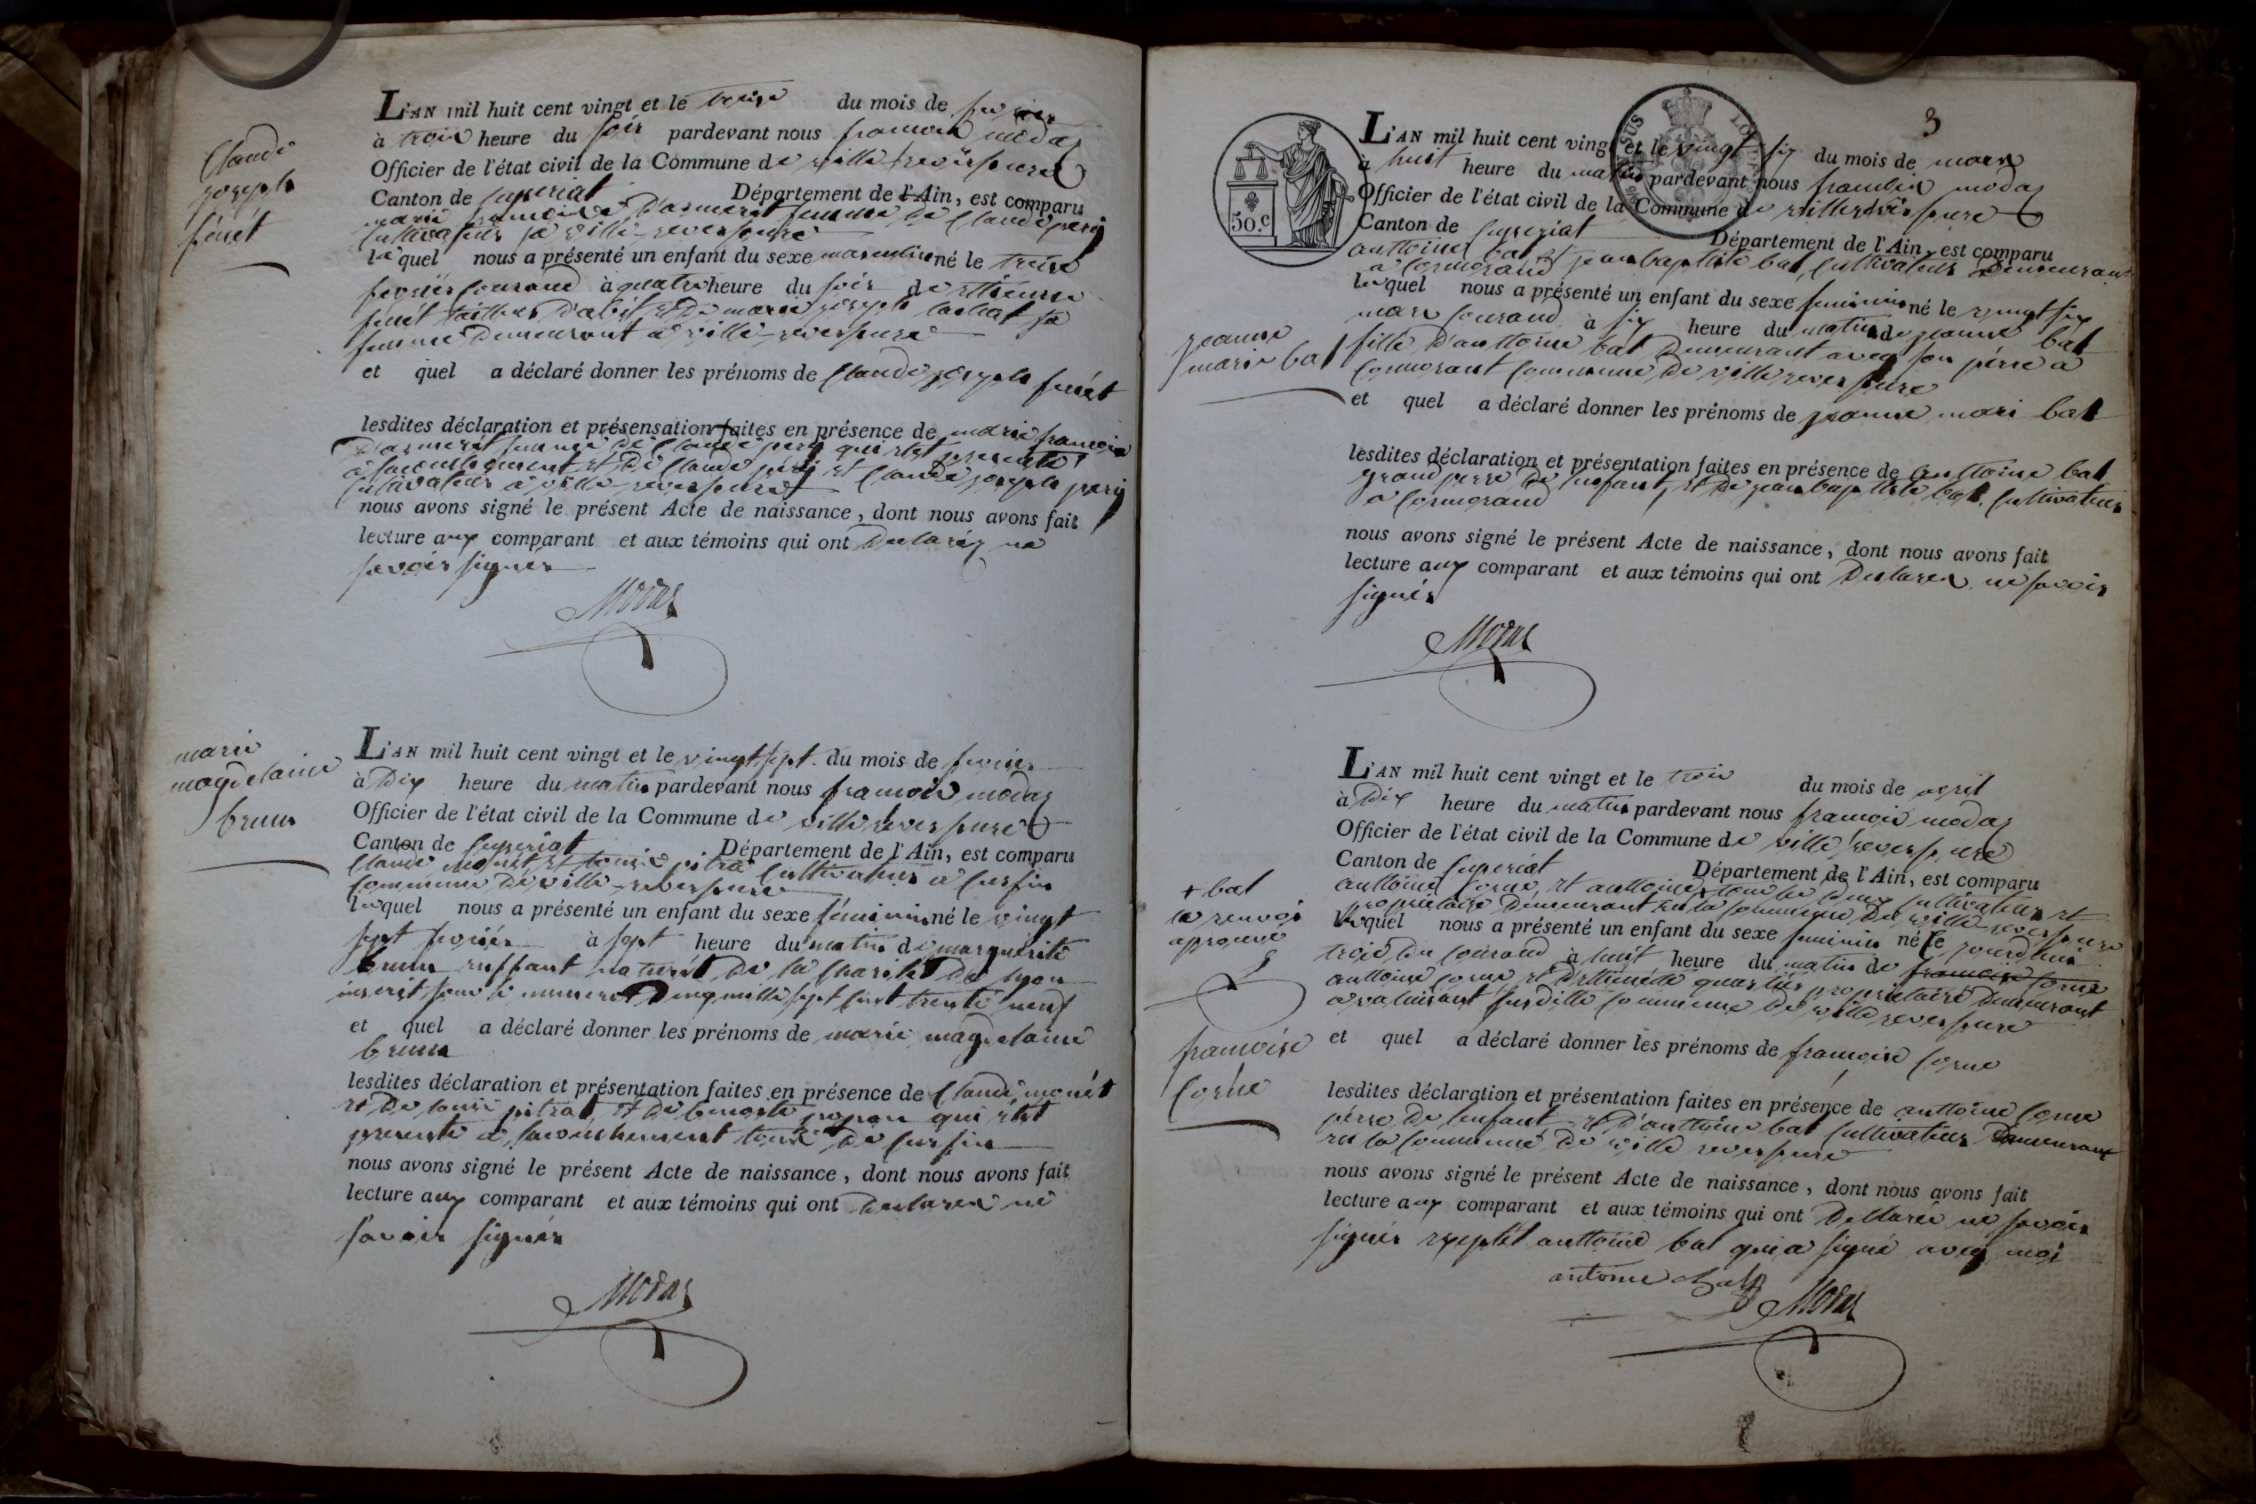 Claude
joseph
finét
L'AN mil huit cent vingt et le treise du mois de fevrier
à trois heure du soir pardevant nous francois modas
Officier de l'état civil de la Commune de ville reverspure
Canton de Ceyseriat Département de l'Ain, est comparu
marie francoise d'armeret femme de Claude pery
Cultivateur a ville-reverspure
lequel nous a présenté un enfant du sexe masculin né le treise
fevrier Courand à quatre heure du soir de
finét tailleur d'abit et de marie joseph sa
femme Demeurant a ville-reverspure
et quel a déclaré donner les prénoms de Claude joseph finét
lesdites déclaration et présensation faites en présence de marie francoise
d'armerét femme de Claude pery qui etet presente
a lacouchement et de Claude pery et Claude joseph pery
Cultivateur a ville-reverspure
nous avons signé le présent Acte de naissance, dont nous avons fait
lecture aux comparant et aux témoins qui ont Declarés ne
savoir signer
Modas
marie
magdelaine
brun
L'AN mil huit cent vingt et le vingt sept du mois de fevrier
à Dix heure du matin pardevant nous francois modas
Officier de l'état civil de la Commune de ville reverspure
Canton de Ceyseriat Département de l'Ain, est comparu
Claude monét et pitrat Cultivateur a Cursin
Commune de ville-reverspure
lequel nous a présenté un enfant du sexe féminin né le vingt
sept fevrier à sept heure du matin de marguerite
brun enffant naturél de la Charité de lyon
inscrit sous le numerot Cinq mille sept cent trente neuf
et quel a déclaré donner les prénoms de marie magdelaine
brun
lesdites déclaration et présentation faites en présence de Claude monét
et de pitrat et de qui etet
presente a lacouchement de Cursin
nous avons signé le présent Acte de naissance, dont nous avons fait
lecture aux comparant et aux témoins qui ont Declarer ne
savoir signer
Modas
3
50.c
L'AN mil huit cent vingt et le vingt six du mois de mars
à huit heure du matin pardevant nous francois modas
Officier de l'état civil de la Commune de ville reverspure
Canton de Ceyseriat Département de l'Ain, est comparu
anttoine bal et jean baptiste bal Cultivateur Demeurant
a Cormorand
lequel nous a présenté un enfant du sexe feminin né le vingt six
mars Courand à six heure du matin de jeanne bal
fille d'anttoine bal Demeurant avec son pére a
Cormorant Commune de ville reverspure
jeanne
marie bal
et quel a déclaré donner les prénoms de jeanne mari bal
lesdites déclaration et présentation faites en présence de anttoine bal
grand pere de lenfant et de jean baptiste bal Cultivateur
a Cormorand
nous avons signé le présent Acte de naissance, dont nous avons fait
lecture aux comparant et aux témoins qui ont Declarer ne savoir
signér
Modas
L'AN mil huit cent vingt et le trois du mois de avril
à Dix heure du matin pardevant nous francois modas
Officier de l'état civil de la Commune de ville reverspure
Canton de Ceyseriat Département de l'Ain, est comparu
anttoine Corne et anttoine + tous les deux Cultivateur et
propriétaire Demeurant en la Commune de ville-reverspure
lequel nous a présenté un enfant du sexe feminin né le jourd'hui
trois du Courand à huit heure du matin de francoise Corne
anttoine Corne et quartier propriétaire Demeurant
a susditte Commune de ville reverspure
+ bal
le renvoi
aprouvé
francoise
Corne
et quel a déclaré donner les prénoms de francoise Corne
lesdites déclaration et présentation faites en présence de anttoine Corne
pére de lenfant et d'anttoine bal Cultivateur Demeurant
en la Commune de ville reverspure
nous avons signé le présent Acte de naissance, dont nous avons fait
lecture aux comparant et aux témoins qui ont Declarér ne savoir
signér exeptét anttoine bal qui a signé avec moi
antoine bal
Modas